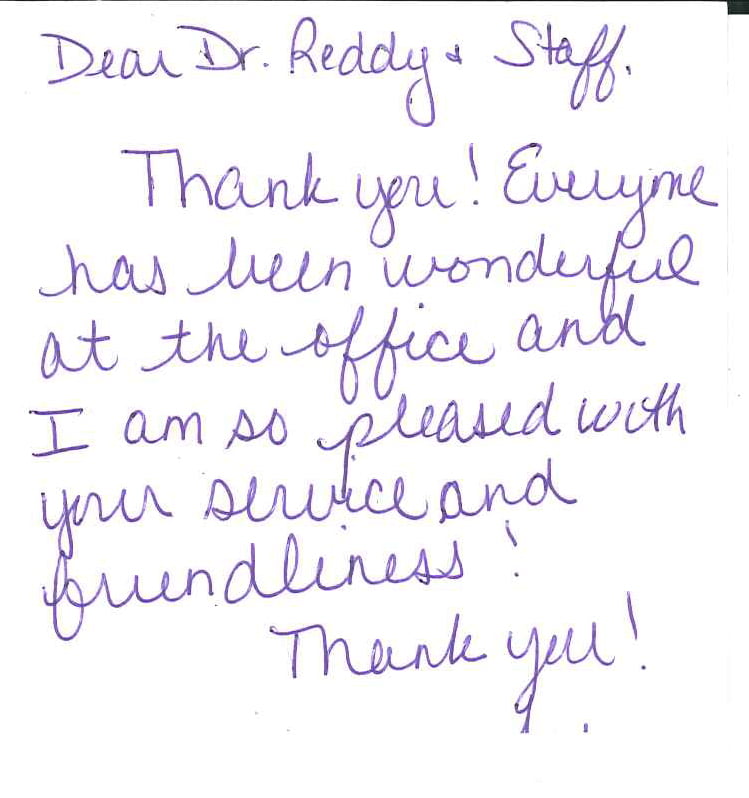 Dear Dr. Reddy & Staff.
Thank you! Everyone
has been wonderful
at the office and
I am so pleased with
your service and
friendliness!
Thank you!